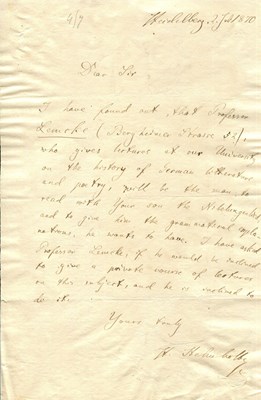 4/7
Heidelberg 2 Juli 1870
Dear Sir
I have found out, that Professor
Lemcke (Bergheimer Strasse 22),
who gives lectures at our University
on the history of German litterature
and poetry, will be the man to
read with Your son the Nibelungenlied
and to give him the grammatical expla-
nations, he wants to have. I have asked
Professor Lemcke, if he would be inclined
to give a private course of lectures
on this subject, and he is inclined to
do it.
Yours truly
H